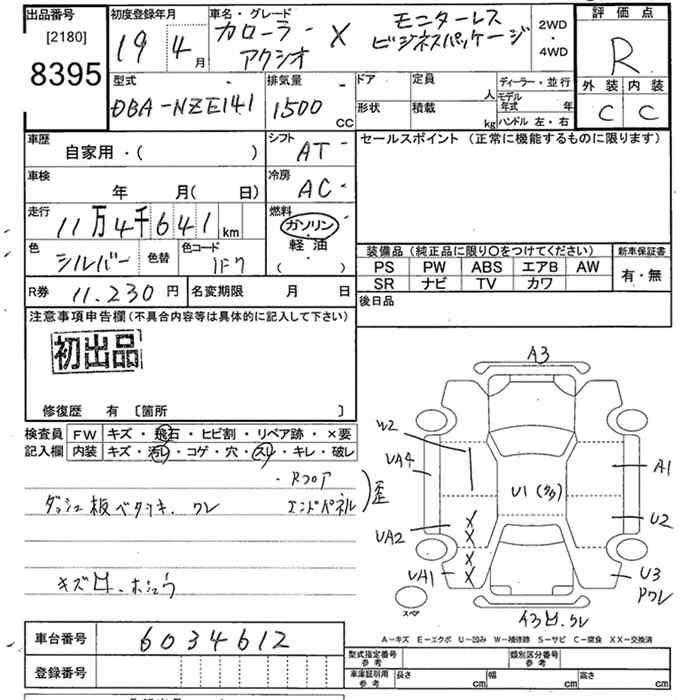 出品番号 初度登録年月 車名・グレード 評価点
[2180] 19年 4月 カローラ アクシオ X モニターレス ビジネスパッケージ 2WD・4WD R
8395
外装 内装
C C
型式 排気量 ドア 定員 人 ディーラー・並行
DBA-NZE141 1500 CC 形状 積載 kg モデル年式 年
ハンドル 左・右
車歴 シフト セールスポイント (正常に機能するものに限ります)
自家用・( ) AT
車検 冷房
年 月( 日) AC
走行 燃料
11万4千641 km ガソリン・軽油
色 色替 色コード ( )
シルバー 1F7
装備品(純正品に限り〇をつけてください) 新車保証書
PS PW ABS エアB AW 有・無
SR ナビ TV カワ
R券 11.230円 名変期限 月 日
後日品
注意事項申告欄(不具合内容等は具体的に記入して下さい)
初出品
修復歴 有 〔箇所 〕
検査員 FW キズ・飛石・ヒビ割・リペア跡・×要
記入欄 内装 キズ・汚レ・コゲ・穴・スレ・キレ・破レ
・Rフロア
エンドパネル 歪
ダッシュ板ベタツキ.ワレ
キズ凹.ホシュウ
A3
W2
UA4 A1
U1(タタ)
U2
UA2
UA1 U3
Pワレ
スペア
イ3凹.ワレ
A-キズ E-エクボ U-凹み W-補修跡 S-サビ C-腐食 XX-交換済
車台番号 6034612
型式指定番号 参考 類別区分番号 参考
登録番号
車庫証明用 参考 長さ cm 幅 cm 高さ cm